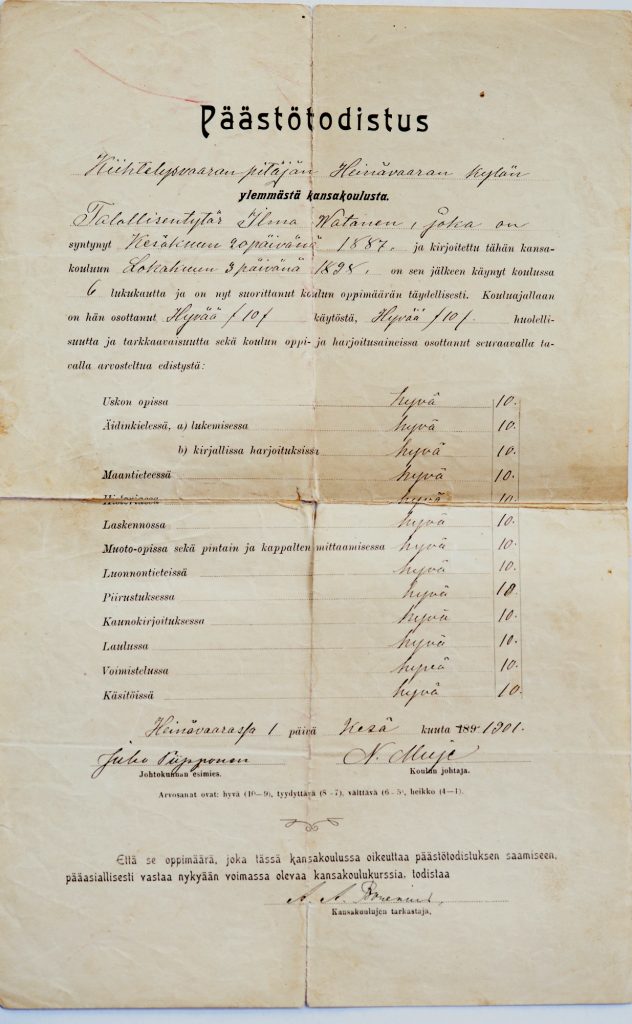 Päästötodistus
Kiihtelysvaaran pitäjän Heinävaaran kylän
ylemmästä kansakoulusta.
Talollisentytär Ilma Watanen, joka on
syntynyt Kesäkuun 20 päivänä 1887. ja kirjoitettu tähän kansa-
kouluun Lokakuun 3 päivänä 1898. on sen jälkeen käynyt koulussa
6 lukukautta ja on nyt suorittanut koulun oppimäärän täydellisesti. Kouluajallaan
on hän osottanut Hyvää /10/ käytöstä, Hyvää /10/. huolelli-
suutta ja tarkkaavaisuutta sekä koulun oppi- ja harjoitusaineissa osottanut seuraavalla ta-
valla arvosteltua edistystä:
Uskon opissa hyvä 10.
Äidinkielessä, a) lukemisessa hyvä 10.
b) kirjallisissa harjoituksissa hyvä 10.
Maantieteessä hyvä 10.
Historiassa hyvä 10.
Laskennossa hyvä 10.
Muoto-opissa sekä pintain ja kappalten mittaamisessa hyvä 10.
Luonnontieteissä hyvä 10.
Piirustuksessa hyvä 10.
Kaunokirjoituksessa hyvä 10.
Laulussa hyvä 10.
Voimistelussa hyvä 10.
Käsitöissä hyvä 10.
Heinävaarassa 1 päivä Kesä kuuta 189 1901.
Juho Piipponen N. Muje
Johtokunnan esimies. Koulun johtaja.
Arvosanat ovat: hyvä (10—9), tyydyttävä (8—7), välttävä (6—5), heikko (4—1).
Että se oppimäärä, joka tässä kansakoulussa oikeuttaa päästötodistuksen saamiseen,
pääasiallisesti vastaa nykyään voimassa olevaa kansakoulukurssia, todistaa
A. A. Borenius,
Kansakoulujen tarkastaja.